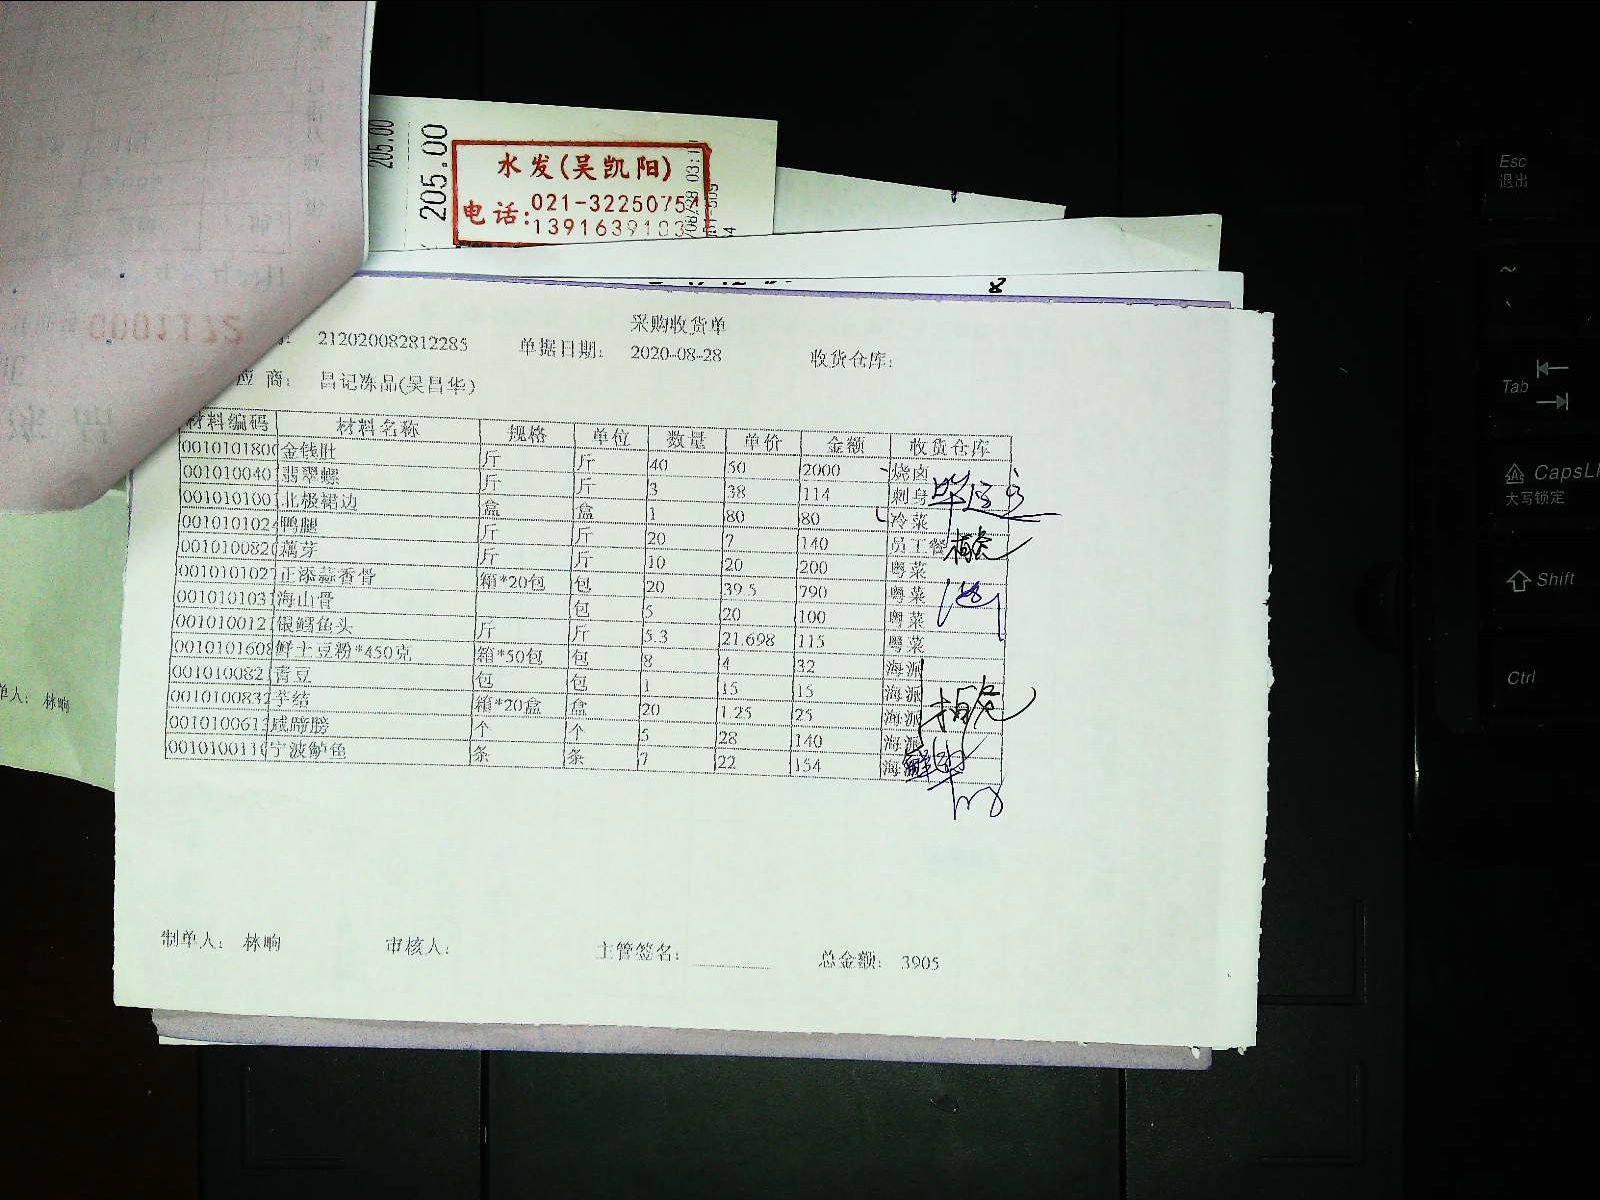 205.00
205.00
水发(吴凯阳)
电话:
021-32250757
1391639103
采购收货单
212020082812285 单据日期: 2020-08-28 收货仓库:
应 商: 昌记冻品(吴昌华)
材料编码 材料名称 规格 单位 数量 单价 金额 收货仓库
0010101800 金钱肚 斤 斤 40 50 2000 烧卤
001010040 翡翠螺 斤 斤 3 38 114 刺身
001010100 北极裙边 盒 盒 1 80 80 冷菜
001010102 鸭腿 斤 斤 20 7 140 员工餐
001010082 藕芽 斤 斤 10 20 200 粤菜
001010102 正添蒜香骨 箱*20包 包 20 39.5 790 粤菜
001010103 海山骨 包 5 20 100 粤菜
001010012 银鳕鱼头 斤 斤 5.3 21.698 115 粤菜
001010160 鲜土豆粉*450克 箱*50包 包 8 4 32 海派
001010082 青豆 包 包 1 15 15 海派
001010083 芋结 箱*20盒 盒 20 1.25 25 海派
001010061 咸蹄膀 个 个 5 28 140 海派
001010011 宁波鲈鱼 条 条 7 22 154 海派
制单人: 林响 审核人: 主管签名: 总金额: 3905
单人: 林响
0001172
Esc
退出
~
Tab
CapsL
大写锁定
Shift
Ctrl